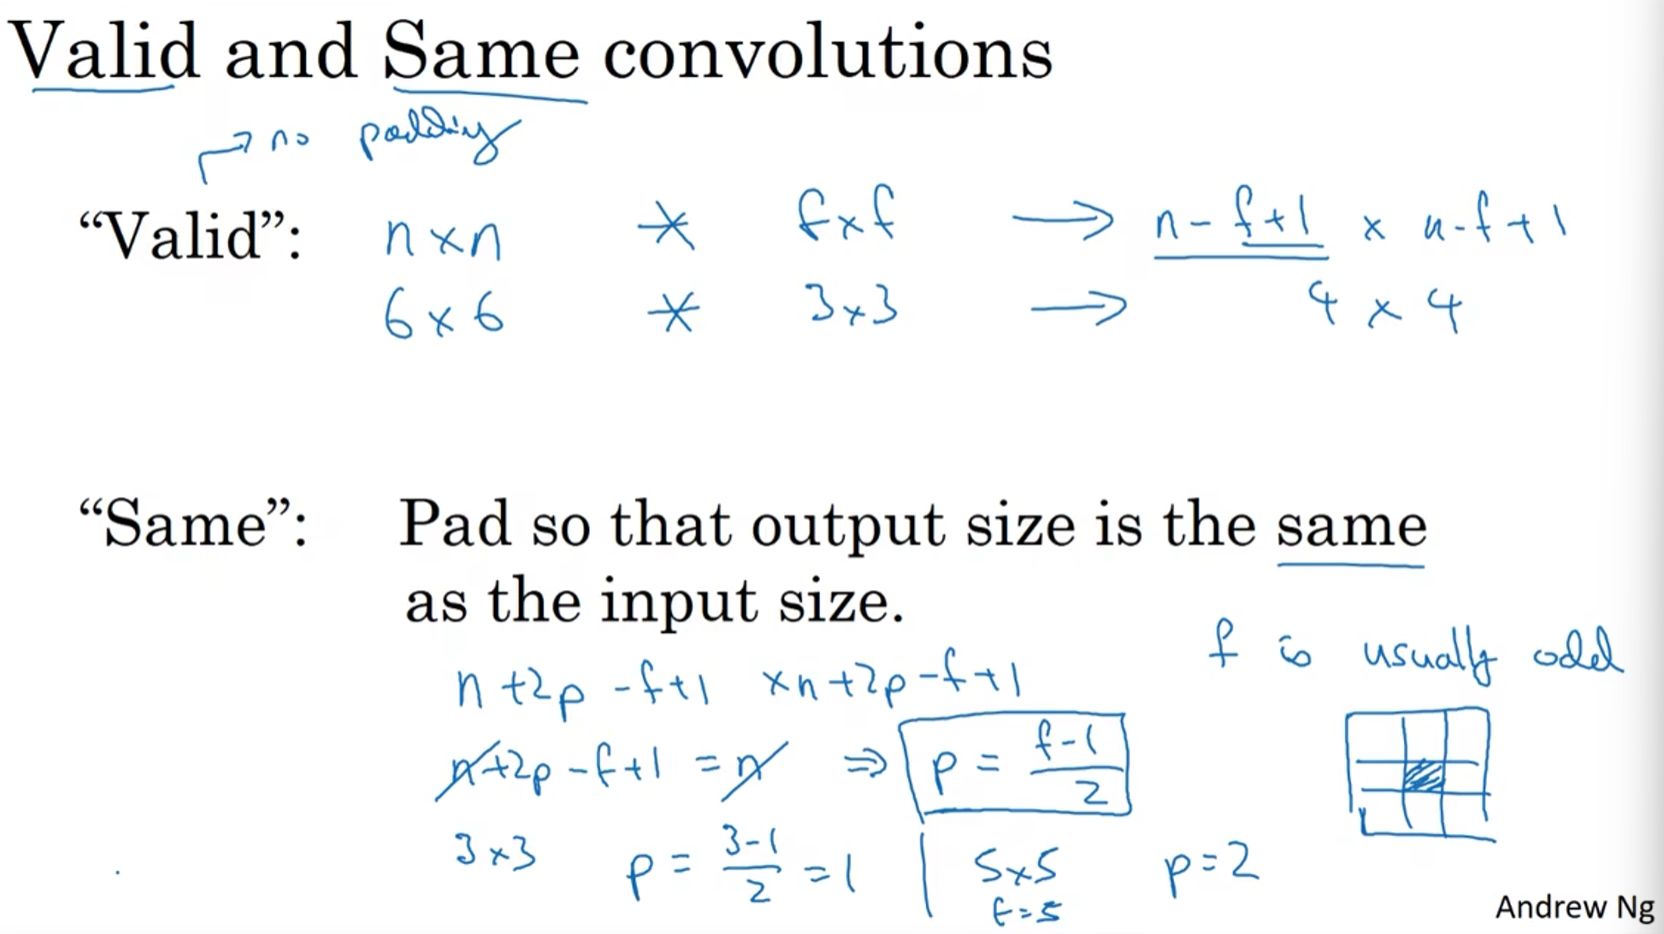 Valid and Same convolutions
→ no padding
“Valid”: n × n * f × f → n - f + 1 × n - f + 1
6 × 6 * 3 × 3 → 4 × 4
“Same”: Pad so that output size is the same
as the input size.
f is usually odd
n + 2p - f + 1 × n + 2p - f + 1
n + 2p - f + 1 = n ⇒ p = (f - 1)/2
3 × 3 p = (3 - 1)/2 = 1 | 5 × 5 p = 2
f = 5
Andrew Ng